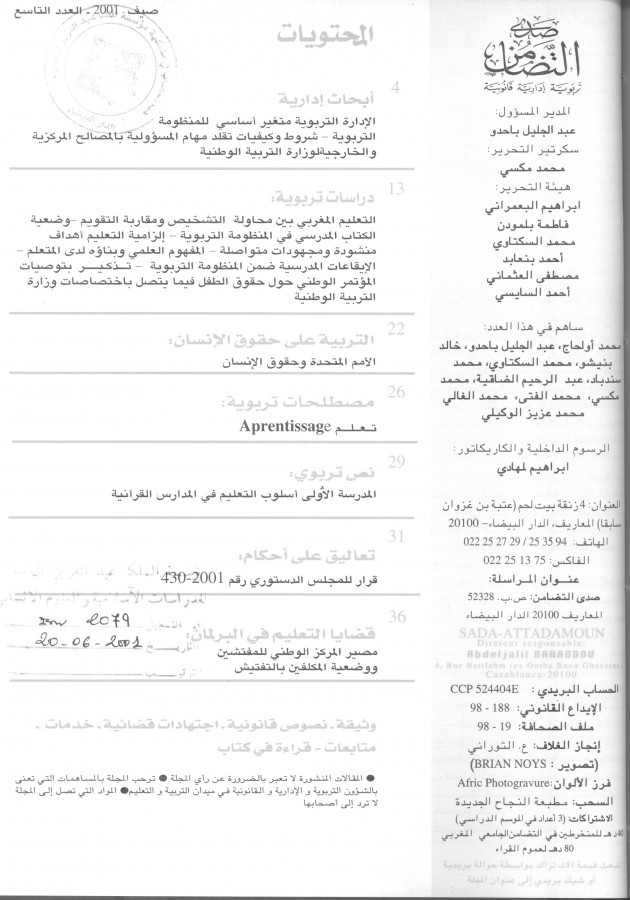 صيف . 2001 . العدد التاسع
المحتويات
4
أبحاث إدارية
الإدارة التربوية متغير أساسي للمنظومة
التربوية – شروط وكيفيات تقلد مهام المسؤولية بالمصالح المركزية
والخارجيةلوزارة التربية الوطنية
13
دراسات تربوية:
التعليم المغربي بين محاولة التشخيص ومقاربة التقويم –وضعية
الكتاب المدرسي في المنظومة التربوية – إلزامية التعليم أهداف
منشودة ومجهودات متواصلة – المفهوم العلمي وبناؤه لدى المتعلم –
الإيقاعات المدرسية ضمن المنظومة التربوية – تـذكـيـــر بتوصيات
المؤتمر الوطني حول حقوق الطفل فيما يتصل باختصاصات وزارة
التربية الوطنية
22
التربية على حقوق الإنسان:
الأمم المتحدة وحقوق الإنسان
26
مصطلحات تربوية:
تـعـلـم Aprentissage
29
نص تربوي:
المدرسة الأولى أسلوب التعليم في المدارس القرآنية
31
تعاليق على أحكام:
قرار للمجلس الدستوري رقم 2001-430
36
قضايا التعليم في البرلمان:
مصير المركز الوطني للمفتشين
ووضعية المكلفين بالتفتيش
2079
20-06-2001
وثيقة . نصوص قانونية . اجتهادات قضائية . خدمات .
متابعات - قراءة في كتاب
● المقالات المنشورة لا تعبر بالضرورة عن رأي المجلة ● ترحب المجلة بالمساهمات التي تعنى
بالشؤون التربوية و الإدارية و القانونية في ميدان التربية و التعليم● المواد التي تصل إلى المجلة
لا ترد إلى أصحابها
صدى
التضامن
تربوية إدارية قانونية
المدير المسؤول:
عبد الجليل باحدو
سكرتير التحرير:
محمد مكسي
هيئة التحرير:
ابراهيم البعمراني
فاطمة بلمودن
محمد السكتاوي
أحمد بنعابد
مصطفى العثماني
أحمد السايسي
ساهم في هذا العدد:
محمد أولحاج، عبد الجليل باحدو، خالد
بنيشو، محمد السكتاوي، محمد
سندباد، عبد الرحيم الضاقية، محمد
مكسي، محمد الفتى، محمد الغالي
محمد عزيز الوكيلي
الرسوم الداخلية والكاريكاتور:
ابراهيم لمهادي
العنوان: 4 زنقة بيت لحم (عتبة بن غزوان
سابقا) المعاريف، الدار البيضاء– 20100
الهاتف: 94 35 25 / 29 27 25 022
الفاكس: 75 13 25 022
عنـــوان المـراسلة:
صدى التضامن: ص.ب. 52328
المعاريف 20100 الدار البيضاء
SADA-ATTADAMOUN
Direteur responsable:
Abdeljalil BAHADDOU
4, Rue Baitlahm (ex Outba Banu Ghazaine)
Casablanca-20100
الحساب البريدي : CCP 524404E
الإيداع القانوني: 188 - 98
ملف الصحافة: 19 - 98
إنجاز الغلاف: ع. التوراني
(تصوير : BRIAN NOYS)
فرز الألوان:Afric Photogravure
السحب: مطبعة النجاح الجديدة
الاشتراكات: (3 أعداد في الموسم الدراسي)
40 دهـ للمنخرطين في التضامن الجامعي المغربي
80 دهـ لعموم القراء
تبعث قيمة الاشتراك بواسطة حوالة بريدية
أو شيك بريدي إلى عنوان المجلة